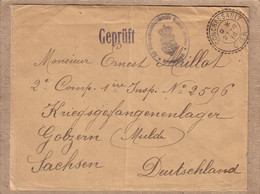 Geprüft
Monsieur Ernest Maillot
2e Comp. 1ere Insp. No 2596
Kriegsgefangenenlager
Golzern (Mulde)
Sachsen Deutschland